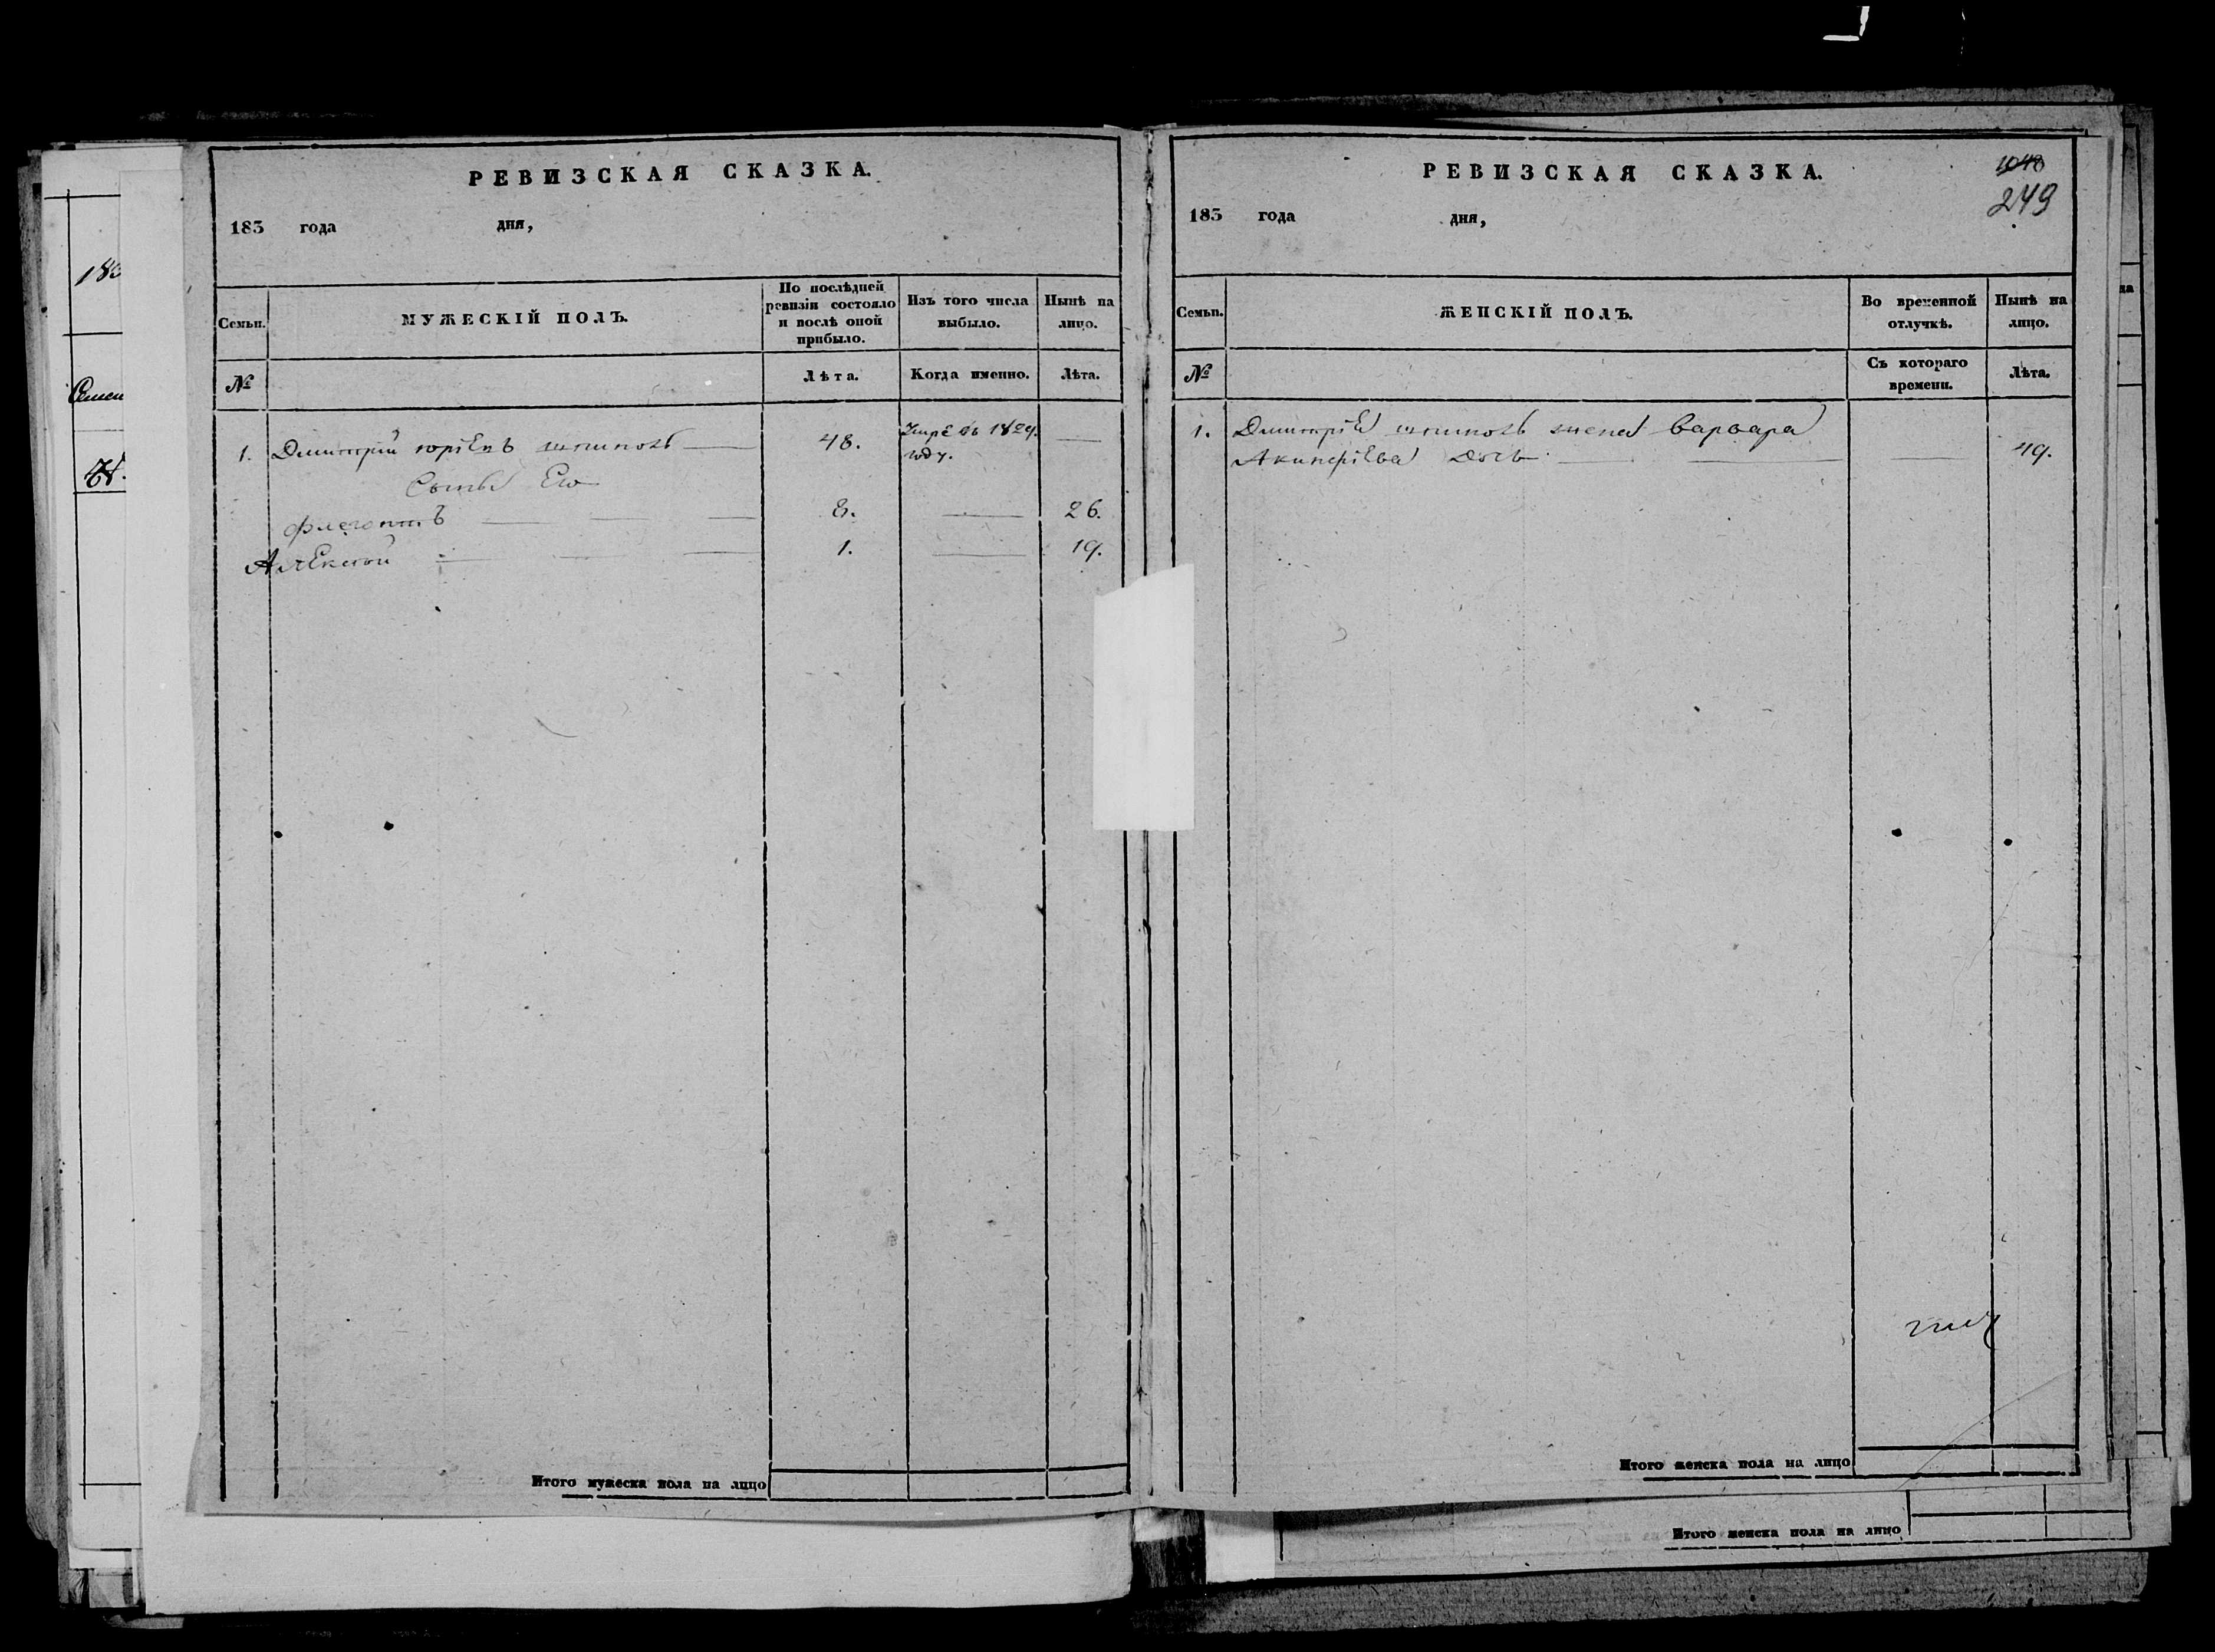 РЕВИЗСКАЯ СКАЗКА.
183 года дня,
Семьи. МУЖЕСКІЙ ПОЛЪ. По послѣдней ревизіи состояло и послѣ оной прибыло. Изъ того числа выбыло. Нынѣ на лицо.
№ Лѣта. Когда именно. Лѣта.
1. Димитрій юріевъ 48. умре въ 1829.
году.
Сыны Его
флегонтъ 8. 26.
Алексѣй 1. 19.
Итого мужеска пола на лицо
РЕВИЗСКАЯ СКАЗКА.
1048
249
183 года дня,
Семьи. ЖЕНСКІЙ ПОЛЪ. Во временной отлучкѣ. Нынѣ на лицо.
№ Съ котораго времени. Лѣта.
1. Димитрія жена варвара
Дочь 49.
Итого женска пола на лицо
Итого женска пола на лицо
183